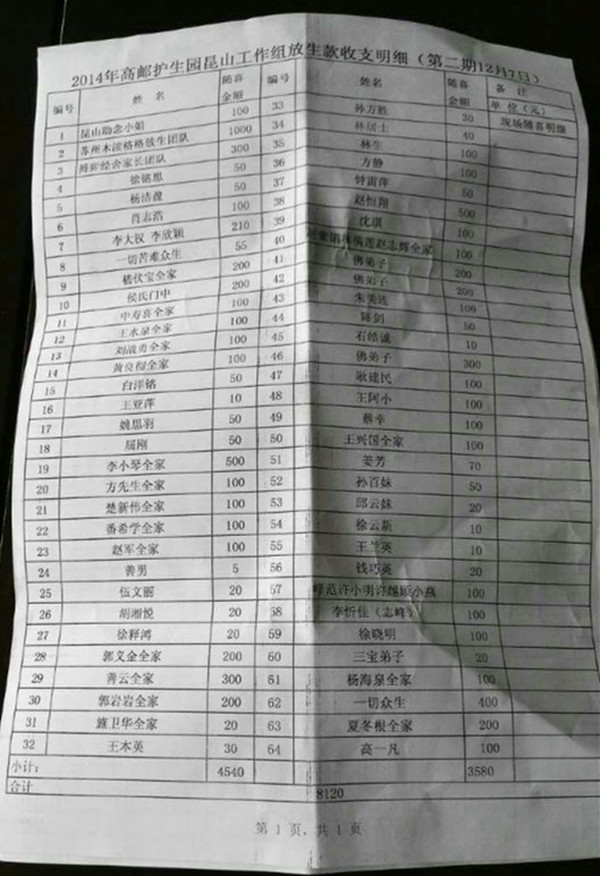 2014年高邮护生园昆山工作组放生款收支明细（第二期12月7日）
编号 姓 名 随喜金额 编号 姓名 随喜金额 备 注
单 位（元）
1 昆山助念小姐 100 33 孙万胜 30 现场随喜明细
2 苏州木渎格格放生团队 1000 34 林居士 40
3 精舍家长团队 300 35 林生 100
4 徐铭思 50 36 方静 100
5 杨洁 50 37 钟雷萍 50
6 肖志浩 100 38 赵恒翔 500
7 李大权 李欣颖 210 39 沈琪 100
8 一切苦难众生 55 40 赵志辉全家 100
9 嵇伏宝全家 200 41 佛弟子 200
10 侯氏门中 200 42 佛弟子 200
11 中寿喜全家 100 43 朱美连 100
12 王水泉全家 100 44 陈剑 50
13 刘波勇全家 100 45 石皓诚 10
14 黄良和全家 100 46 佛弟子 300
15 白洋铭 50 47 耿建民 100
16 王亚萍 10 48 王阿小 100
17 姚思羽 50 49 蔡幸 100
18 屈刚 50 50 王兴国全家 100
19 李小琴全家 500 51 姜芳 70
20 方先生全家 100 52 孙百妹 50
21 楚新伟全家 100 53 邱云妹 20
22 番希学全家 100 54 徐云新 10
23 赵军全家 100 55 王兰英 10
24 善男 5 56 钱巧英 20
25 伍文丽 20 57 范许小明许 小燕 100
26 胡湘悦 20 58 李忻佳（志峰） 100
27 徐释鸿 20 59 徐晓明 100
28 郭义金全家 200 60 三宝弟子 20
29 善云全家 300 61 杨海泉全家 100
30 郭岩岩全家 200 62 一切众生 400
31 施卫华全家 20 63 夏冬根全家 200
32 王本英 30 64 高一凡 100
小计： 4540 3580
合计 8120
第 1 页，共 1 页